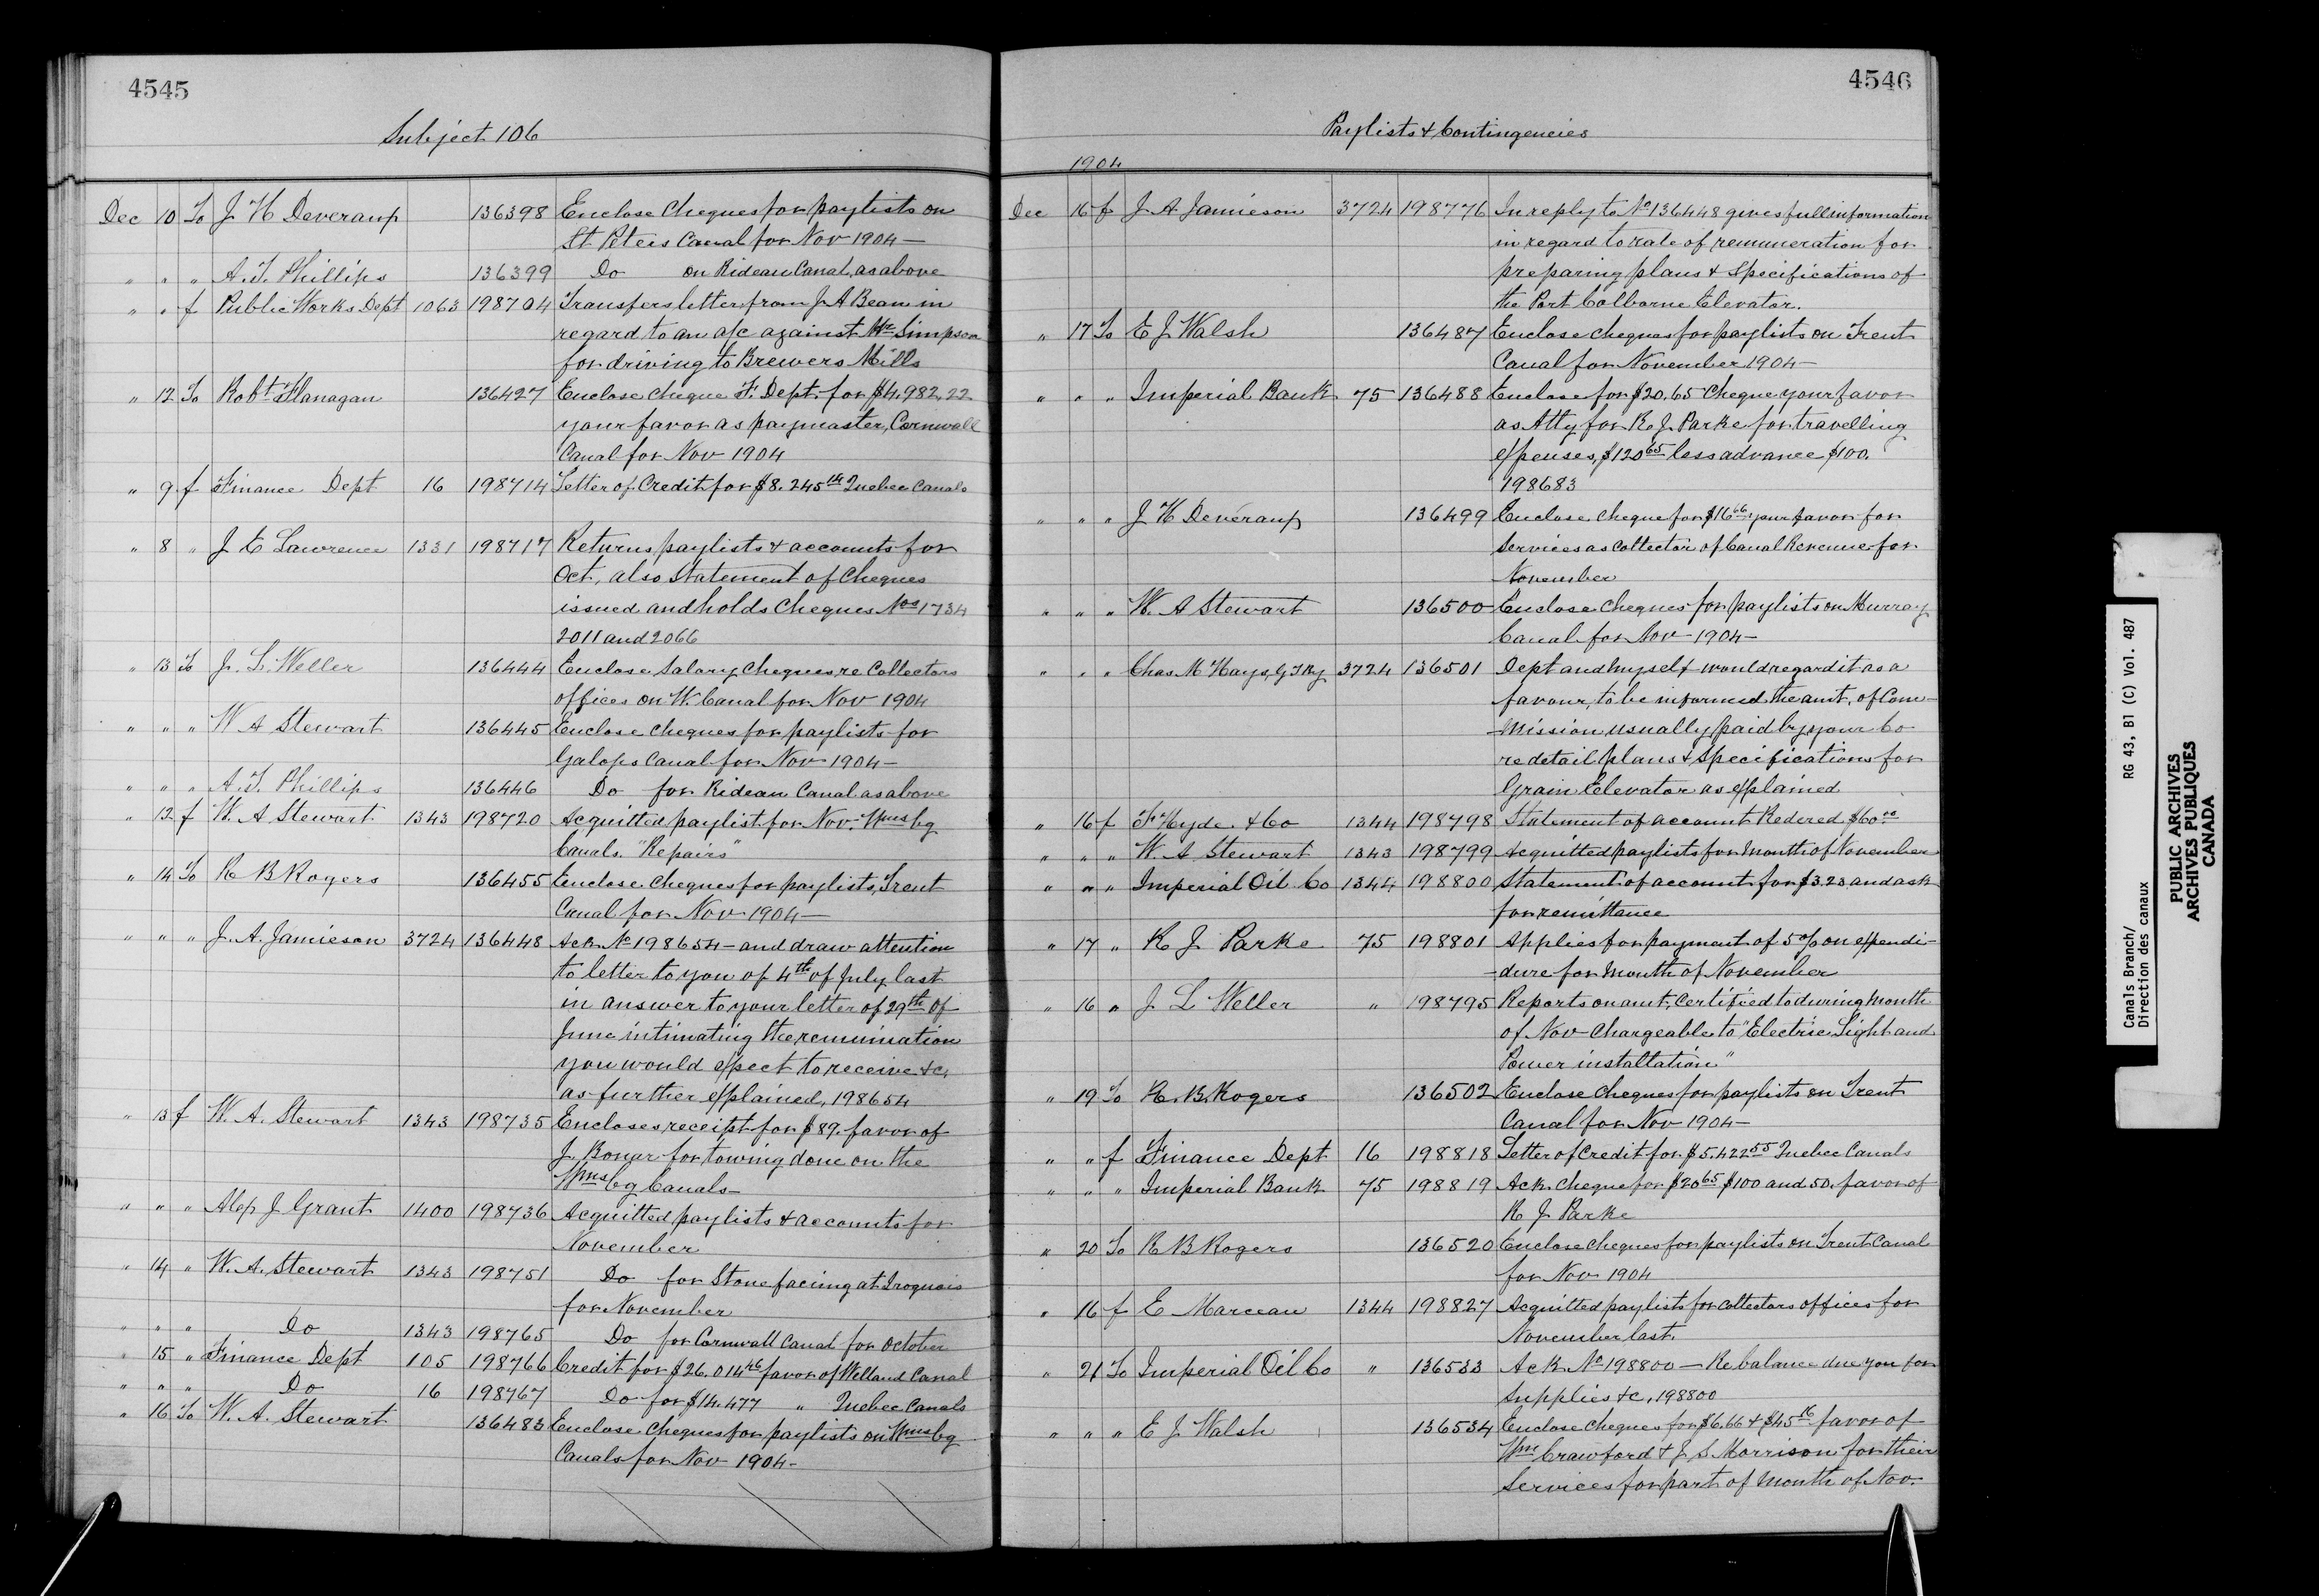 4545
Subject 106
Dec 10 To J H Deveraux 136398 Enclose Cheques for paylists on
St Peters Canal for Nov 1904 —
" " " A. T. Phillips 136399 Do on Rideau Canal, as above
" " f Public Works Dept 1063 198704 Transfers letter from J A Beam in
regard to an a/c against Mr Simpson
for driving to Brewers Mills
" 12 To Robt Flanagan 136427 Enclose Cheque F. Dept. for $4,982.22
your favor as paymaster, Cornwall
Canal for Nov 1904
" 9 f Finance Dept 16 198714 Letter of Credit for $8.245 14 Quebec Canals
" 8 " J E Lawrence 1331 198717 Returns paylists & accounts for
Oct, also Statement of Cheques
issued and holds Cheques Nos 1734
2011 and 2066
" 13 To J. L. Weller 136444 Enclose Salary Cheques re Collectors
offices on W. Canal for Nov 1904
" " " W A Stewart 136445 Enclose Cheques for paylists for
Galops Canal for Nov 1904 —
" " " A. T. Phillips 136446 Do for Rideau Canal as above
" 12 f W. A Stewart 1343 198720 Acquitted paylist for Nov. Wmsbg
Canals. "Repairs"
" 14 To R B Rogers 136455 Enclose Cheques for paylists, Trent
Canal for Nov 1904 —
" " " J. A. Jamieson 3724 136448 Ack No 198654 — and draw attention
to letter to you of 4th of July last
in answer to your letter of 29th of
June intimating the remuniation
you would expect to receive &c.
as further explained, 198654
" 13 f W. A. Stewart 1343 198735 Encloses receipt for $89. favor of
J. Bonar for towing done on the
Wmsbg Canals —
" " " Alex J Grant 1400 198736 Acquitted paylists & accounts for
November
" 14 " W. A. Stewart 1343 198751 Do for Stone facing at Iroquois
for November
" " " Do 1343 198765 Do for Cornwall Canal for October
" 15 " Finance Dept 105 198766 Credit for $26.014 46 favor of Welland Canal
" " " Do 16 198767 Do for $14.477 " Quebec Canals
" 16 To W. A. Stewart 136483 Enclose Cheques for paylists on Wmsbg
Canals for Nov 1904 -
4546
Paylists & Contingencies
1904
Dec 16 f J A Jamieson 3724 198776 In reply to No 136448 gives full information
in regard to rate of remuneration for
preparing plans & Specifications of
the Port Colborne Elevator.
" 17 To E J Walsh 136487 Enclose cheques for paylists on Trent
Canal for November 1904 —
" " " Imperial Bank 75 136488 Enclose for $20.65 Cheque your favor
as Atty for R. J. Parke for travelling
expenses, $120 65 less advance $100.
198683
" " " J H Deveraux 136499 Enclose cheque for $16 66 your favor for
Services as Collector of Canal Revenue for
November
" " " W. A Stewart 136500 Enclose Cheques for paylists on Murray
Canal for Nov 1904 —
" " " Chas. M Hays, G T Ry 3724 136501 Dept and myself would regard it as a
favour, to be informed the amt. of Com-
-mission usually paid by your Co
re detail plans & Specifications for
Grain Elevator as explained
" 16 f F Hyde & Co 1344 198798 Statement of account Redered $60 00
" " " W. A Stewart 1343 198799 Acquitted paylists for Month of November
" " " Imperial Oil Co 1344 198800 Statement of account for $3.23 and ask
for remittance
" 17 " R J Parke 75 198801 Applies for payment of 5% on expendi-
-dure for Month of November
" 16 " J L Weller " 198795 Reports on amt. Certified to during Month
of Nov Chargeable to "Electric Light and
Power installation"
" 19 To R. B. Rogers 136502 Enclose Cheques for paylists on Trent
Canal for Nov 1904 —
" " f Finance Dept 16 198818 Letter of Credit for $5.422 55 Quebec Canals
" " " Imperial Bank 75 198819 Ack. Cheque for $20 65 $100 and 50. favor of
R J Parke
" 20 To R B Rogers 136520 Enclose Cheques for paylists on Trent Canal
for Nov 1904
" 16 f E Marceau 1344 198827 Acquitted paylists for Collectors offices for
November last.
" 21 To Imperial Oil Co " 136533 Ack No 198800 — Re balance due you for
Supplies &c, 198800
" " " E J Walsh 136534 Enclose cheques for $6.66 & $45 16 favor of
Wm Crawford & J S Morrison for their
Services for part of Month of Nov.
Canals Branch/ RG 43, B1 (C) Vol. 487
Direction des canaux
PUBLIC ARCHIVES
ARCHIVES PUBLIQUES
CANADA